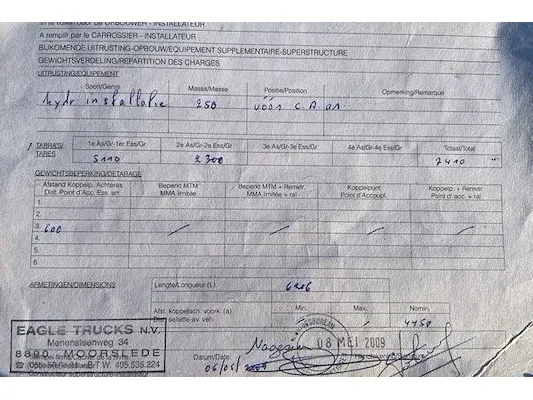 In te vullen door de OPBOUWER - INSTALLATEUR
A remplir par le CARROSSIER - INSTALLATEUR
BIJKOMENDE UITRUSTING-OPBOUW/EQUIPEMENT SUPPLEMENTAIRE-SUPERSTRUCTURE
GEWICHTSVERDELING/REPARTITION DES CHARGES
UITRUSTING/EQUIPEMENT
Soort/Genre Massa/Masse Positie/Position Opmerking/Remarque
hydr installatie 250 vóór C A an
TARRA'S/ TARES 1e As/Gr-1er Ess/Gr 2e As/Gr-2e Ess/Gr 3e As/Gr-3e Ess/Gr 4e As/Gr-4e Ess/Gr Totaal/Total
5110 2300 7410
GEWICHTSBEPERKING/DETARAGE
Afstand Koppelp. Achteras Beperkt MTM Beperkt MTM + Remvtr. Koppelpunt Koppelp. + Remvtr.
Dist. Point d'Acc. Ess. arr. MMA limitée MMA limitée + ral Point d'Accoupl. Point d'acc. + ral
1.
2.
3. 600
4.
5.
6.
AFMETINGEN/DIMENSIONS Lengte/Longueur (L) 6286
Afst. koppelsch. voork. (a) Min. Max. Nomin.
Dist sellette-av. veh. 4450
EAGLE TRUCKS N.V.
Menensteenweg 34
8890 MOORSLEDE
B.T.W. 405.535.224
08 MEI 2009
Datum/Date 06/05/